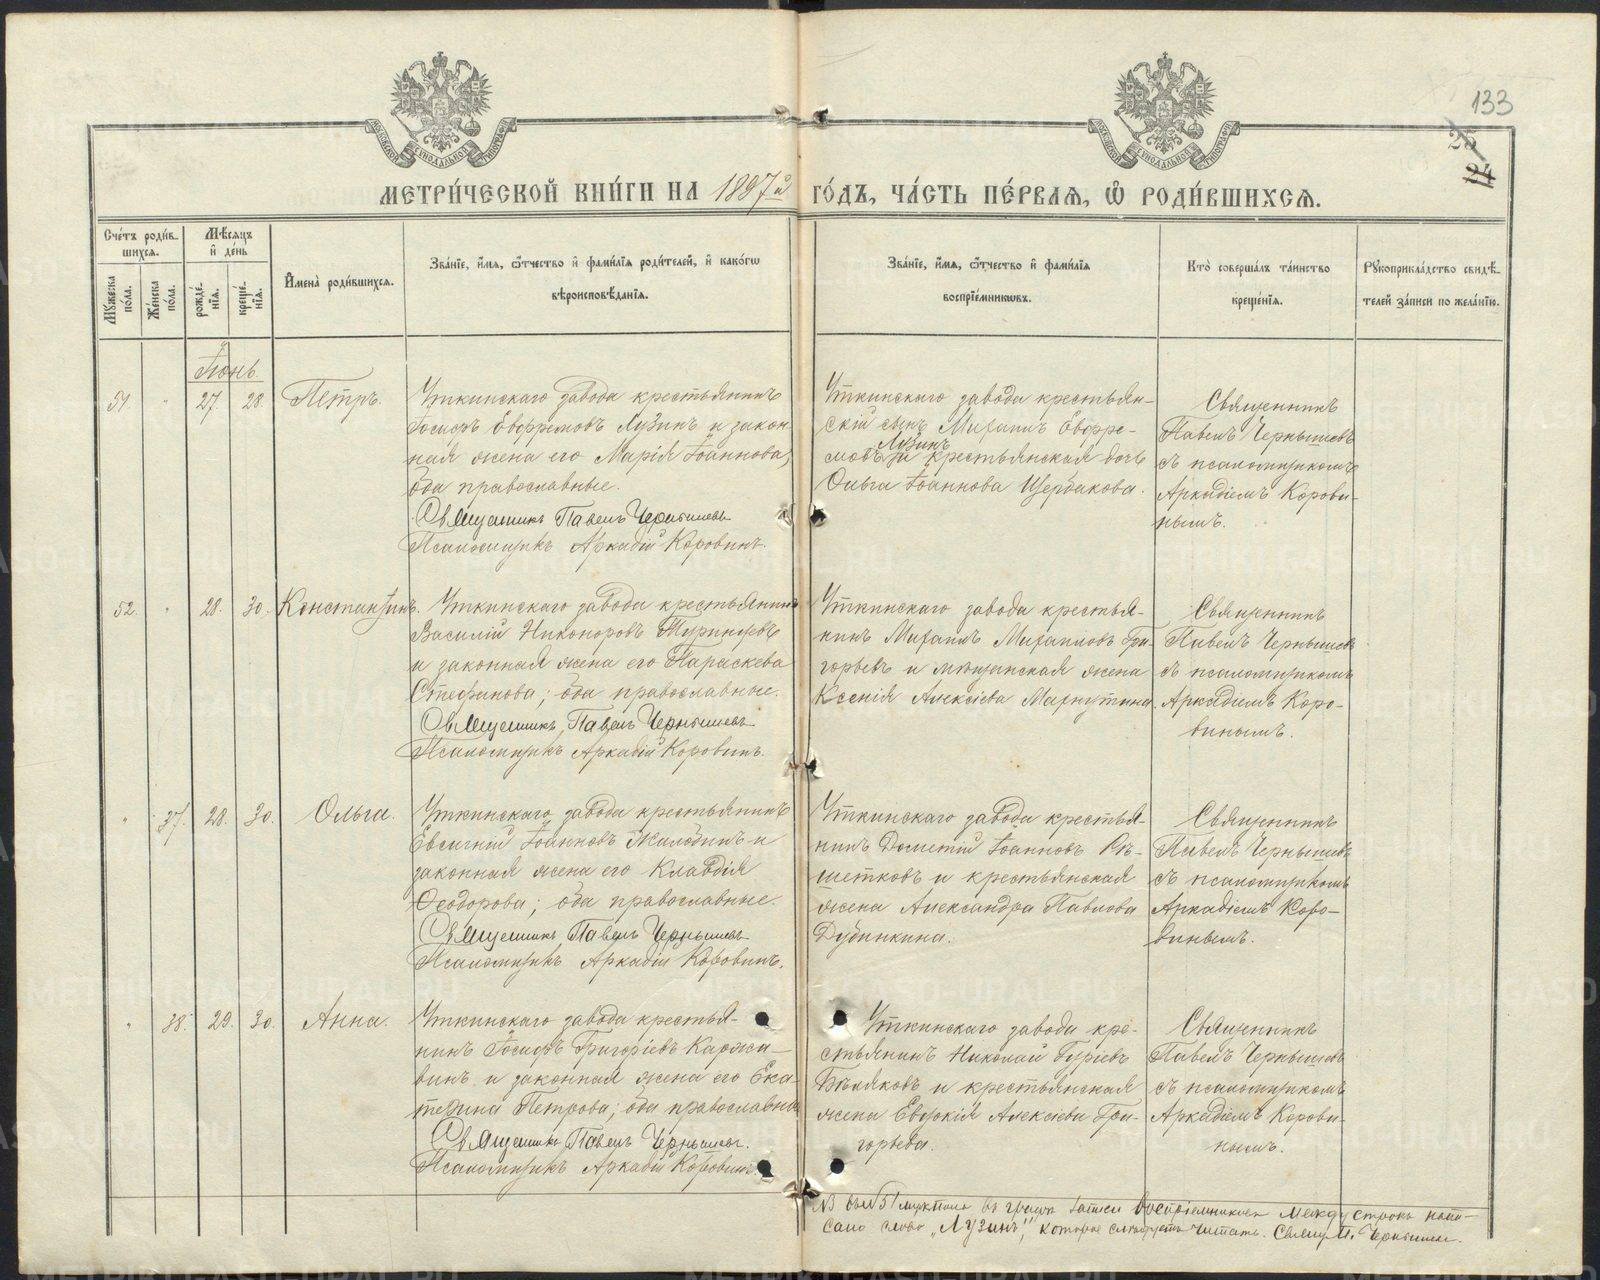 133
25
24
МОСКОВСКОЙ СѴНОДАЛЬНОЙ ТИПОГРАФІИ
МОСКОВСКОЙ СѴНОДАЛЬНОЙ ТИПОГРАФІИ
МЕТРИ́ЧЕСКОЙ КНИ́ГИ НА 1897й ГО́ДЪ, ЧА́СТЬ ПЕ́РВАЯ, Ѡ҆ РОДИ́ВШИХСЯ.
Сче́тъ роди́в-
шихся.
Му́жеска по́ла.
Же́нска по́ла.
Мѣ́сяцъ
и҆ де́нь
рожде́нїѧ.
креще́нїѧ.
И҆мена̀ роди́вшихся.
Зва́нїе, и҆́мѧ, ѻ҆́тчество и҆ фами́лїѧ роди́телей, и҆ како́гѡ
вѣроисповѣ́данїѧ.
Зва́нїе, и҆́мѧ, ѻ҆́тчество и҆ фами́лїѧ
воспрїе́мникѡвъ.
Кто̀ соверша́лъ та́инство
креще́нїѧ.
Рꙋкоприкла́дство свидѣ́-
телей за́писи по жела́нїю.
Іюнь.
51. " 27. 28. Петръ.
Уткинскаго завода крестьянинъ
Іосифъ Евфремовъ Лузинъ и закон-
ная жена его Марія Іоаннова,
оба православные.
Священникъ Павелъ Чернышевъ
Псаломщикъ Аркадій Коровинъ.
Уткинскаго завода крестьян-
скій сынъ Михаилъ Евфре-
Лузинъ
мовъ и крестьянская дочь
Ольга Іоаннова Щербакова.
Священникъ
Павелъ Чернышевъ
съ псаломщикомъ
Аркадіемъ Корови-
нымъ.
52. " 28. 30. Константинъ.
Уткинскаго завода крестьянинъ
Василій Никоноровъ
и законная жена его Параскева
Стефанова; оба православные.
Священникъ Павелъ Чернышевъ
Псаломщикъ Аркадій Коровинъ.
Уткинскаго завода крестья-
нинъ Михаилъ Михаиловъ Гри-
горьевъ и мѣщанская жена
Ксенія Алексіева
Священникъ
Павелъ Чернышевъ
съ псаломщикомъ
Аркадіемъ Коро-
винымъ.
" 37. 28. 30. Ольга.
Уткинскаго завода крестьянинъ
Евсигній Іоанновъ Жилобинъ и
законная жена его Клавдія
Ѳеодорова; оба православные.
Священникъ Павелъ Чернышевъ
Псаломщикъ Аркадій Коровинъ.
Уткинскаго завода крестья-
нинъ Дометій Іоанновъ Рѣ-
шетковъ и крестьянская
жена Александра Павлова
Дубинкина.
Священникъ
Павелъ Чернышевъ
съ псаломщикомъ
Аркадіемъ Коро-
винымъ.
" 38. 29. 30. Анна.
Уткинскаго завода крестья-
нинъ Іосифъ Григоріевъ Каржа-
винъ и законная жена его Ека-
терина Петрова; оба православны
Священникъ Павелъ Чернышевъ.
Псаломщикъ Аркадій Коровинъ
Уткинскаго завода кре-
стьянинъ Николай Гуріевъ
Бѣляковъ и крестьянская
жена Евдокія Алексіева Гри-
горьева.
Священникъ
Павелъ Чернышевъ
съ псаломщикомъ
Аркадіемъ Корови-
нымъ.
въ графѣ записи воспріемниковъ между строкъ напи-
сано слово „Лузинъ", которое слѣдуетъ читать. Свящ. П. Чернышевъ.